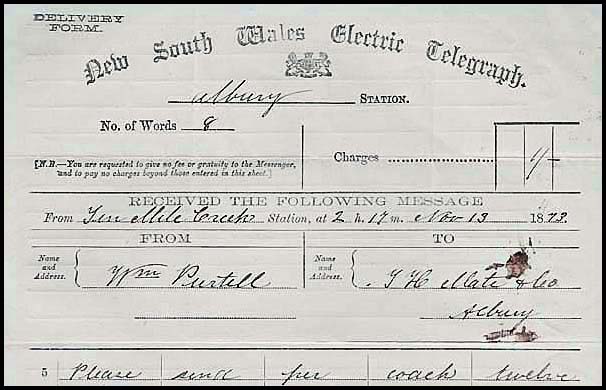 DELIVERY
FORM.
New South Wales Electric Telegraph.
Albury STATION.
No. of Words 8
Charges 1/-
[N.B.—You are requested to give no fee or gratuity to the Messenger,
and to pay no charges beyond those entered in this sheet.]
RECEIVED THE FOLLOWING MESSAGE
From Ten Mile Creek Station, at 2 h. 17 m. Nov 13 1873.
FROM TO
Name and Address. Wm Purtell
Name and Address. T H Mate & Co
Albury
5 Please send per coach twelve